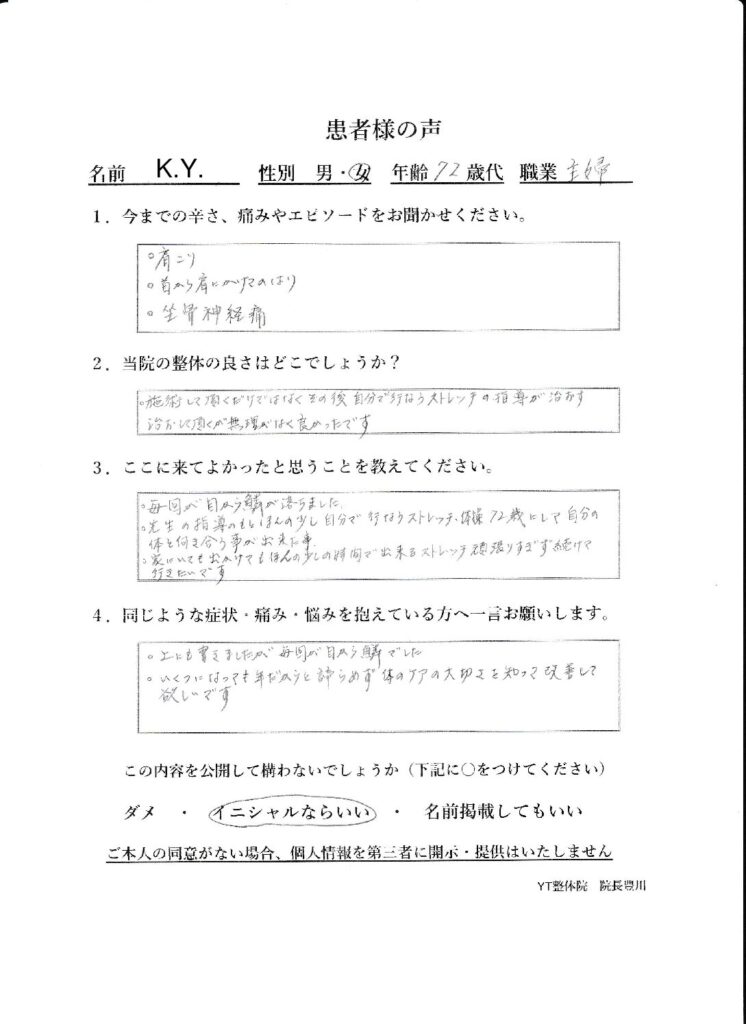 患者様の声
名前 K.Y. 性別 男・女 年齢 72 歳代 職業 主婦
1．今までの辛さ、痛みやエピソードをお聞かせください。
○肩こり
○首から肩にかけてのはり
○坐骨神経痛
2．当院の整体の良さはどこでしょうか？
○施術して頂くだけではなくその後自分で行なうストレッチの指導が治おす
治おして頂くが無理がなく良かったです
3．ここに来てよかったと思うことを教えてください。
○毎回が目から鱗が落ちました
○先生の指導のもとほんの少し自分で行なうストレッチ、体操72歳にして自分の
体と向き合う事が出来た事
○家にいても出かけてもほんの少しの時間で出来るストレッチ頑張りすぎず続けて
行きたいです
4．同じような症状・痛み・悩みを抱えている方へ一言お願いします。
○上にも書きましたが毎回が目から鱗でした
○いくつになっても年だからと諦らめず体のケアの大切さを知って改善して
欲しいです
この内容を公開して構わないでしょうか（下記に○をつけてください）
ダメ ・ イニシャルならいい ・ 名前掲載してもいい
ご本人の同意がない場合、個人情報を第三者に開示・提供はいたしません
YT整体院 院長豊川